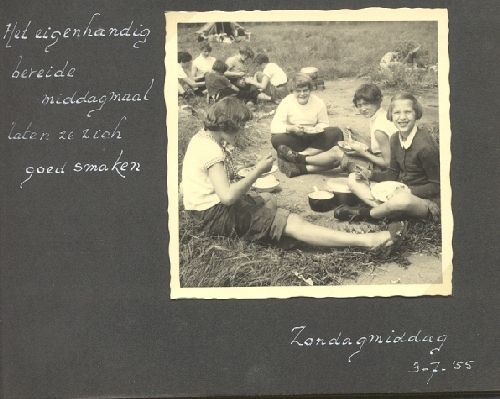 Het eigenhandig
bereide
middagmaal
laten ze zich
goed smaken
Zondagmiddag
3-7-'55